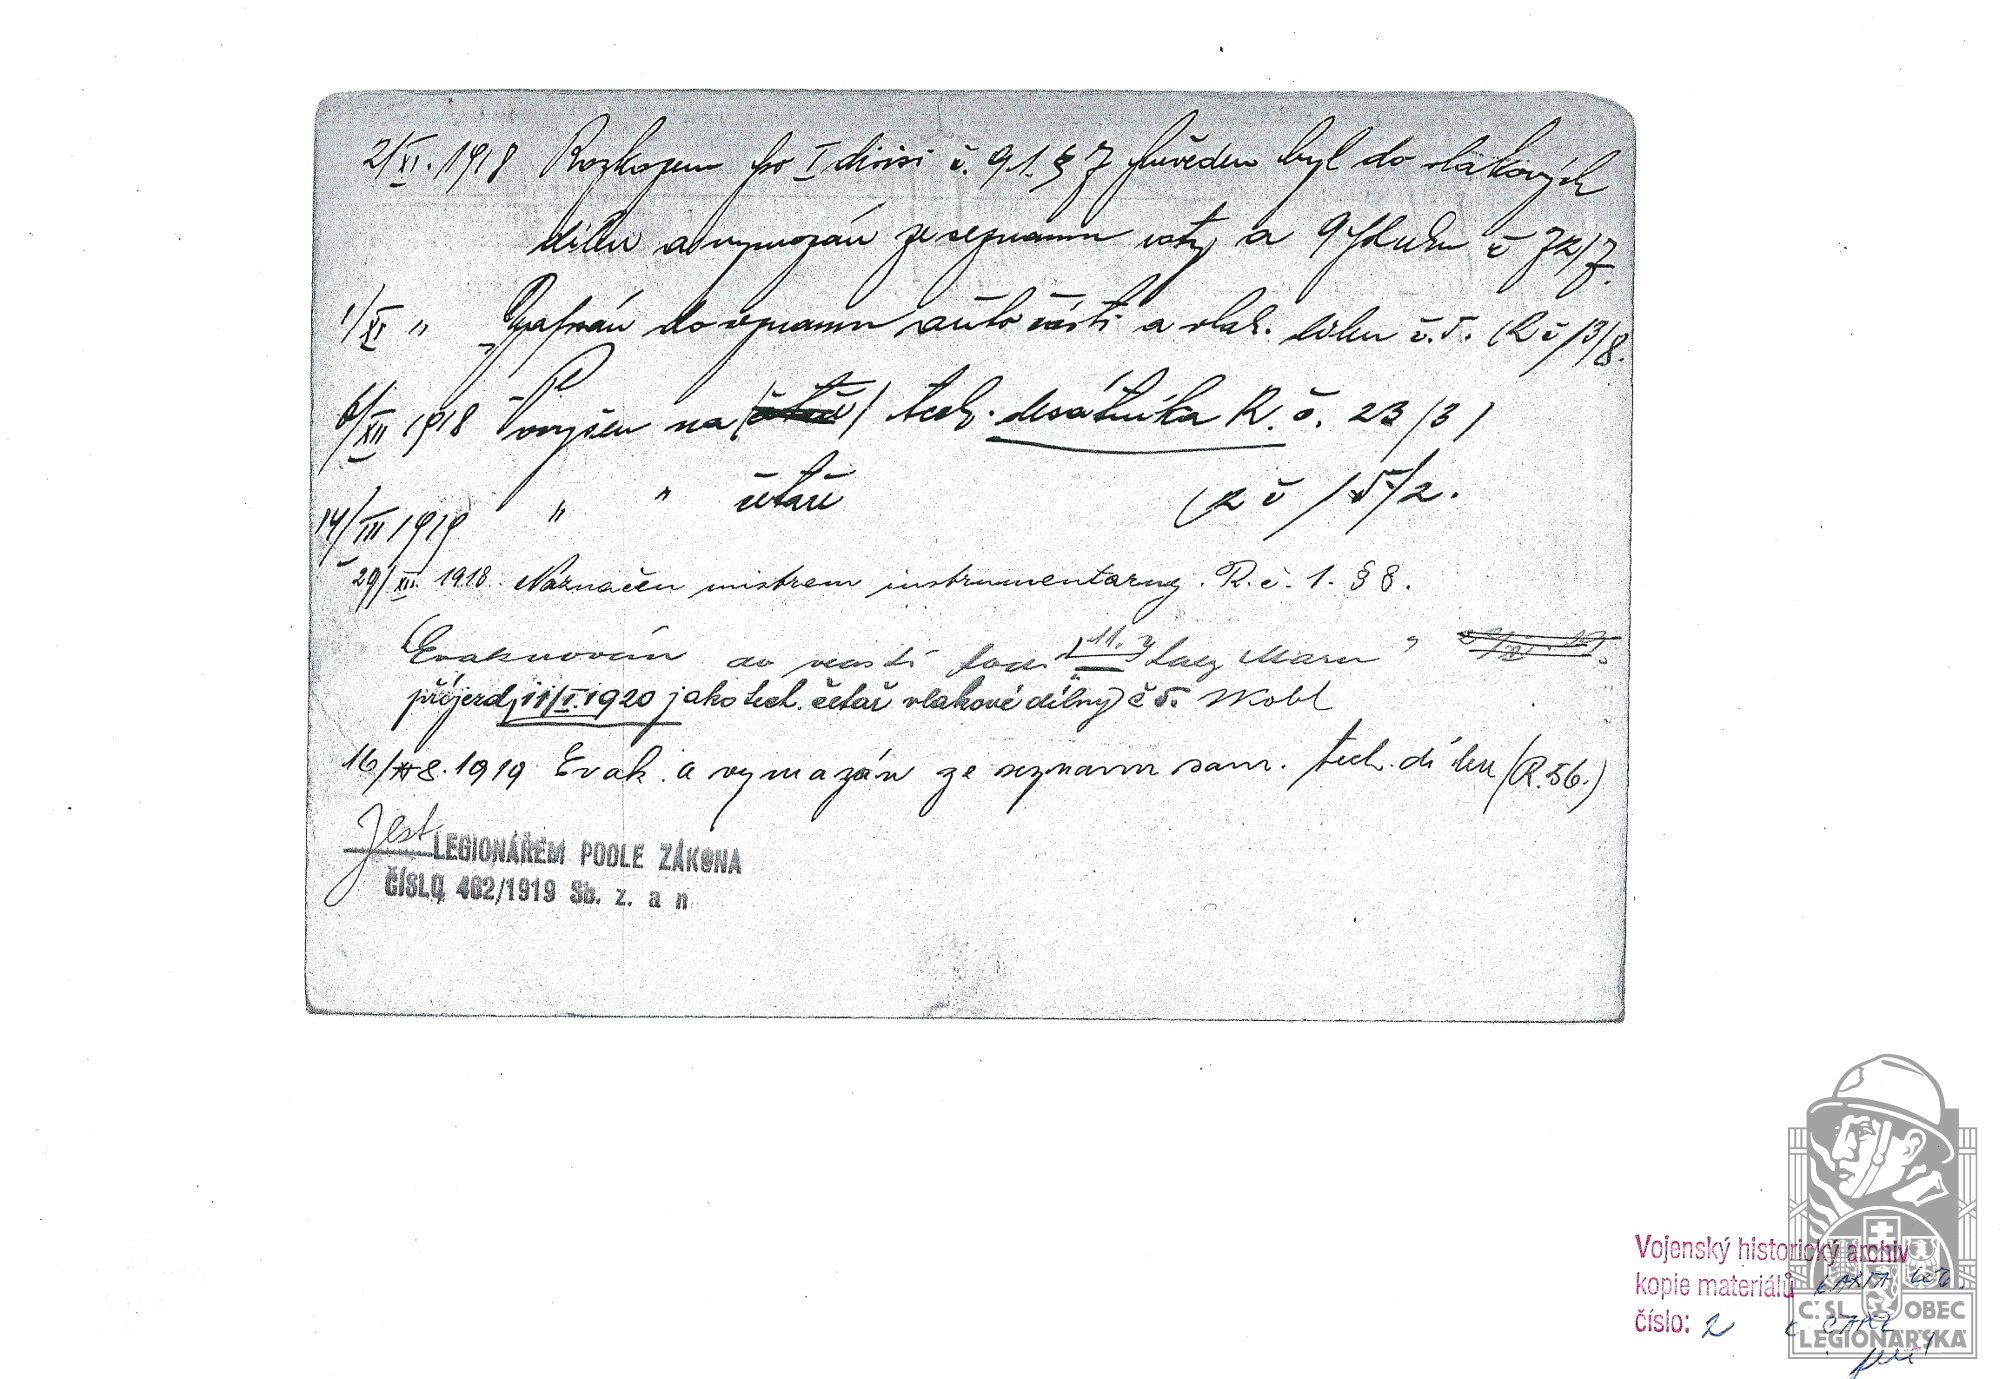 2/XI. 1918 Rozkazem po I divisi č. 91. § 7 převeden byl do vlakových
dílen a vymazán ze seznamu roty a 9 pluku č 72/7.
1/XI " Zapsán do seznamu autočásti a vlak. dílen č. 5. (R č 13/8.
6/XII 1918 Povýšen na (četaře) tech. desátníka R. č. 23/3)
14/III 1919 " " četaře (R č 15/2.
29/XII. 1918. Naznačen mistrem instrumentarny. R. č. 1. § 8.
Evakuován do vlasti lodí "
příjezd 11/I. 1920 jako tech. četař vlakové dílny č 5.
16/8. 1919 Evak. a vymazán ze seznamu sam. tech. dílen (R. 56.)
Jest LEGIONÁŘEM PODLE ZÁKONA
ČÍSLO 462/1919 Sb. z. a n
Vojenský historický archiv
kopie materiálů
číslo: 2
Č. SL. OBEC
LEGIONÁŘSKÁ